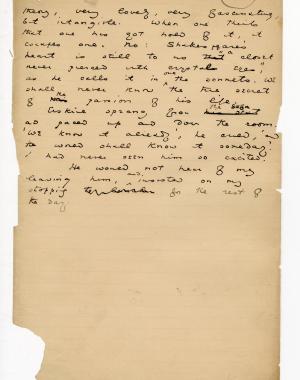 theory, very lovely, very fascinating,
but intangible. When one thinks
that one has got hold of it, it
escapes one. No: Shakespeare's
heart is still to us "a closet
never pierced with crystal eyes,"
as he calls it in one the sonnets. We
shall never know the true secret
of the passion of his life."
Erskine sprang from the sofa
and paced up and down the room.
"We know it already," he cried, "and
the world shall know it someday."
I had never seen him so excited.
He would not hear of my
leaving him, and insisted on my
stopping for the rest of
the day.